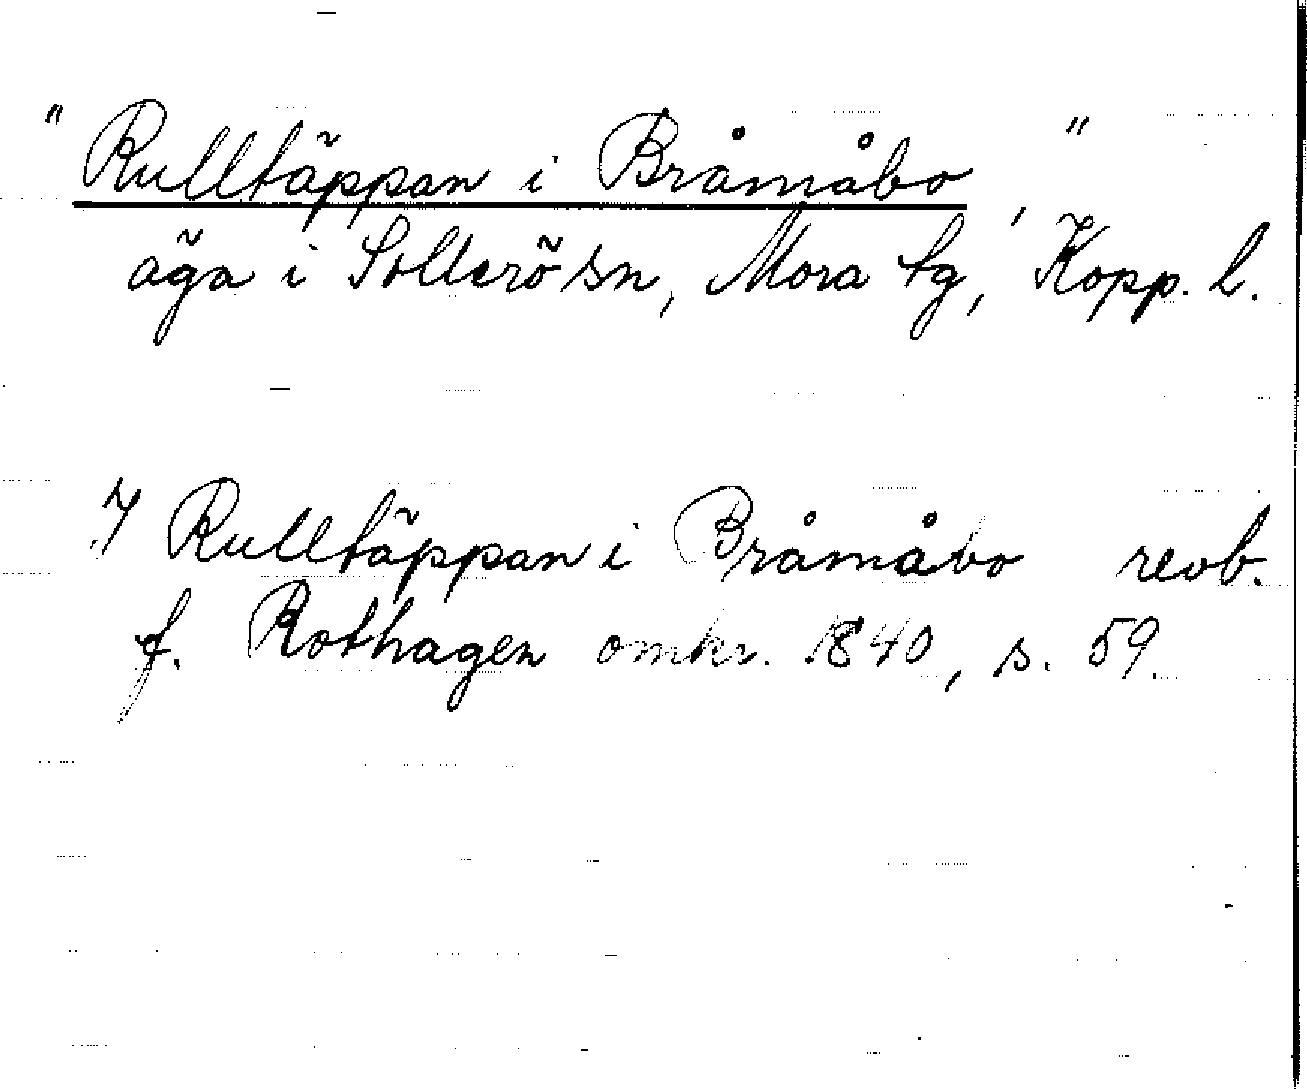 " Rulltäppan i Bråmåbo "
äga i Sollerö sn, Mora tg, Kopp. l.
7 Rulltäppan i Bråmåbo revb.
f. Rothagen omkr. 1840, s. 59.